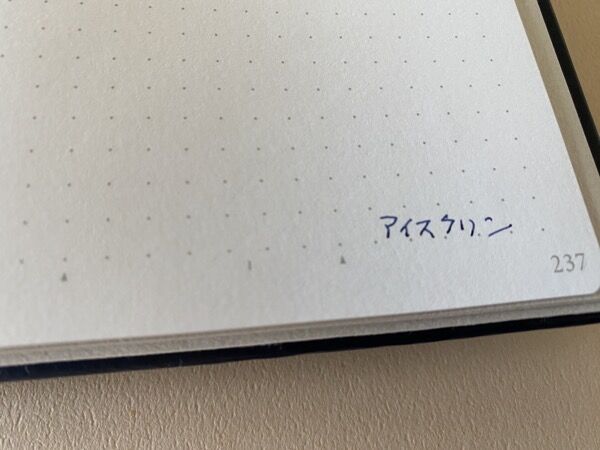 アイスクリン
237